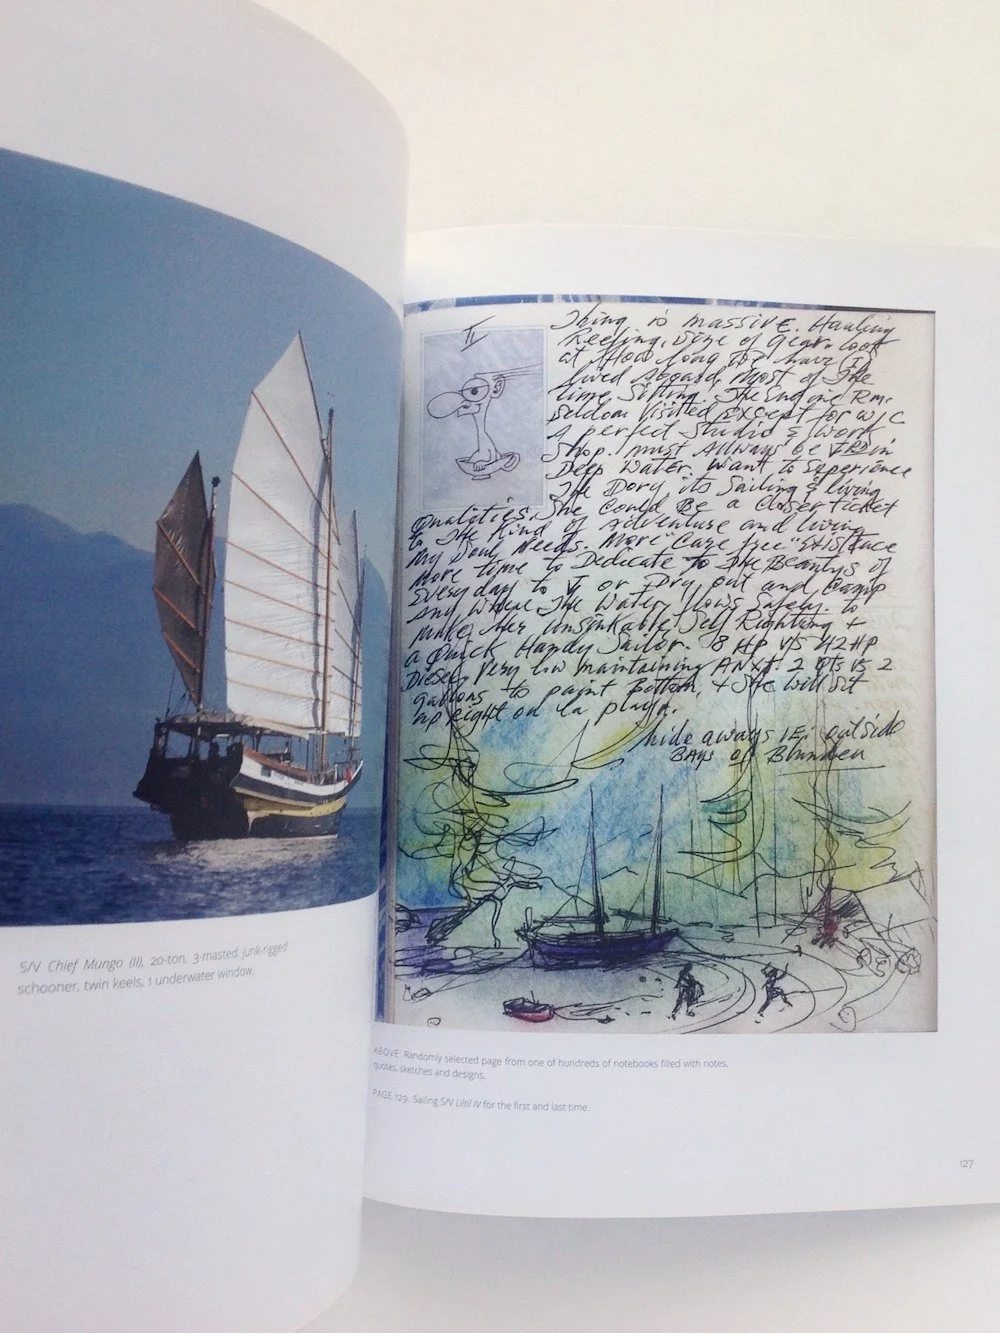 S/V Chief Mungo (II), 20-ton, 3-masted junk-rigged
schooner, twin keels, 1 underwater window.
Thing is massive. Hauling
Reefing, size of gear. look
at How long we have
lived Aboard, Most of The
time, Sitting. The Engine Rm.
Seldom Visited Except for W/C
A perfect Studio & Work
Shop. I must Allways be in
Deep Water. Want to Experience
The Dory its Sailing & living
Qualities. She Could Be a Closer ticket
to The Kind of Adventure and living
My Soul Needs. More "Care free" Existance
More time to Dedicate to The Beautys of
Every day to or Dry out and Camp
Any Where The Water flows Safely. to
Make Her Unsinkable, Self Righting +
a Quick Handy Sailor. 8 HP VS 42 HP
Diesel, Very low maintaining 2 QTS VS 2
gallons to paint Bottom, + She will sit
upright on La playa.
hide aways IE: outside
BAYS of
ABOVE: Randomly selected page from one of hundreds of notebooks filled with notes,
quotes, sketches and designs.
PAGE 129: Sailing S/V Litsl IV for the first and last time.
127